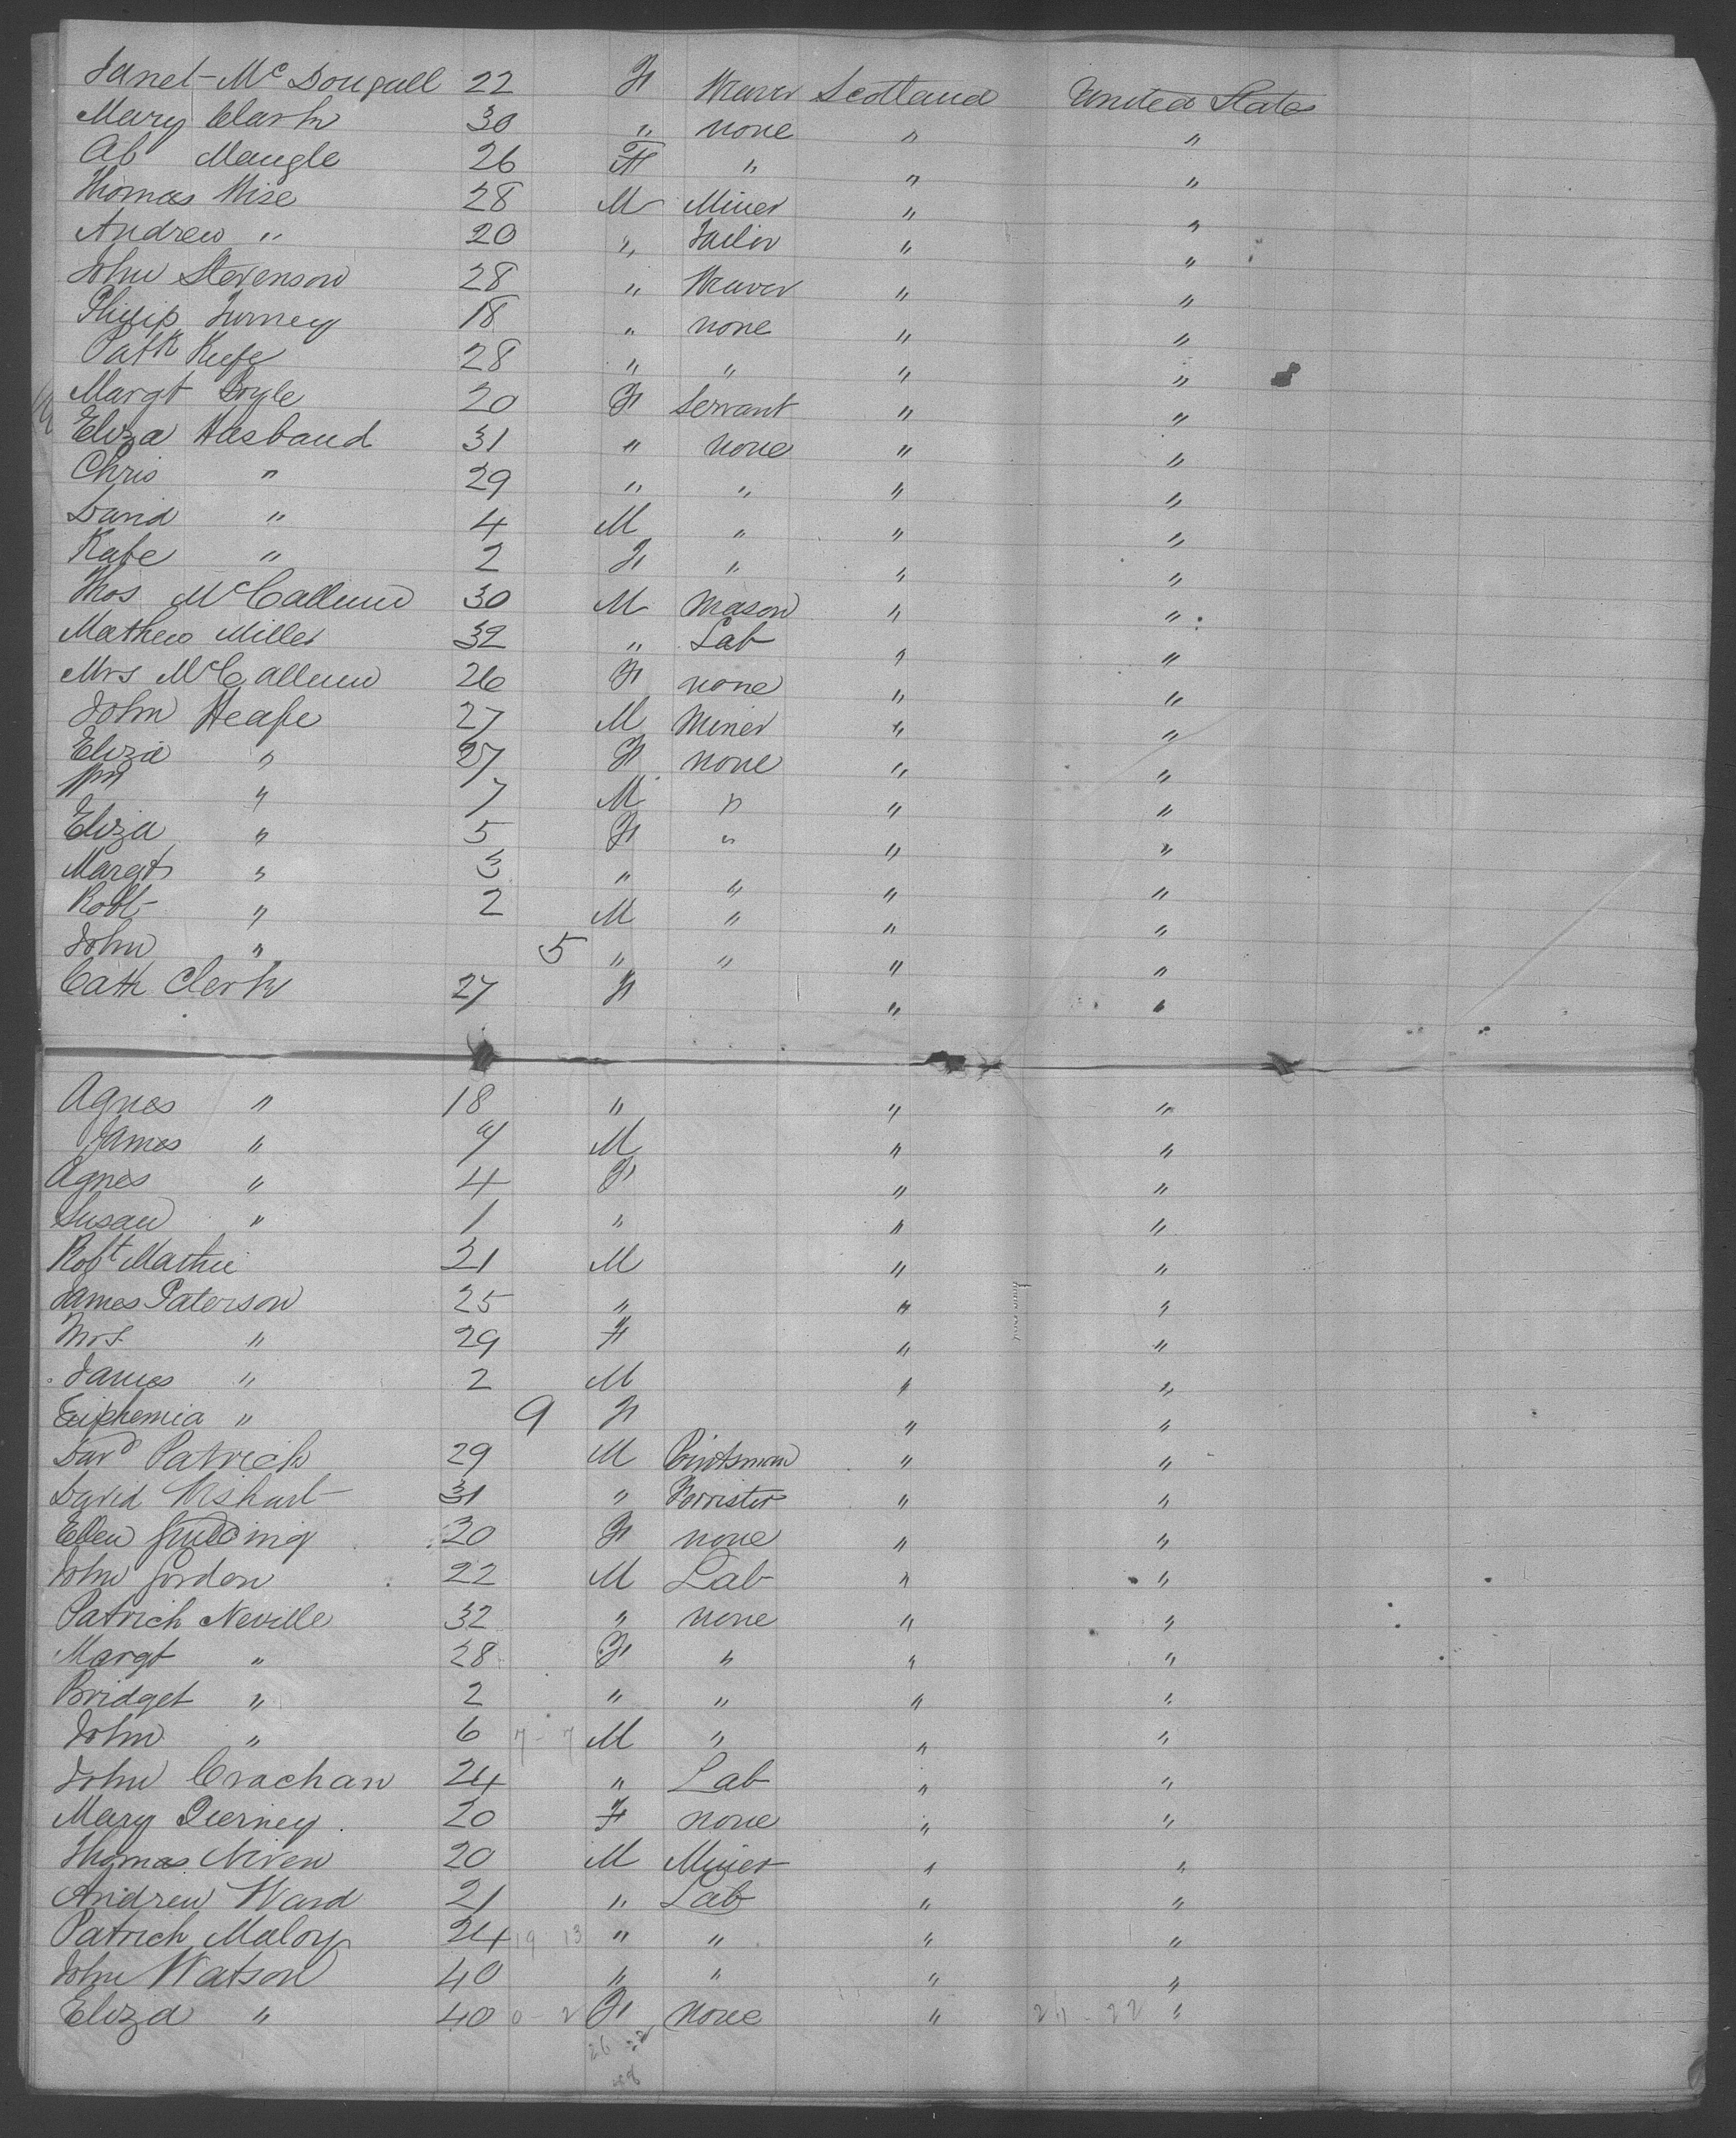 Janet McDougall 22 F Weaver Scotland United States
Mary Clark 30 " none " "
Ab Mangle 26 F " " "
Thomas Wise 28 M Miner " "
Andrew " 20 " Tailor " "
John Stevenson 28 " Weaver " "
Philip Turney 18 " none " "
Patk Keefe 28 " " " "
Margt Boyle 20 F Servant " "
Eliza Husband 31 " none " "
Chris " 29 " " " "
David " 4 M " " "
Kate " 2 F " " "
Thos McCallum 30 M Mason " "
Mathew Miller 32 " Lab " "
Mrs McCallum 26 F none " "
John Heape 27 M Miner " "
Eliza " 27 F none " "
Wm " 7 M " " "
Eliza " 5 F " " "
Margt " 3 " " " "
Robt " 2 M " " "
John " 5 " " " "
Cath Clerk 27 F " "
Agnes " 18 " " "
James " 7 M " "
Agnes " 4 F " "
Susan " 1 " " "
Robt Mathie 21 M " "
James Paterson 25 " " "
Mrs " 29 F " "
James " 2 M " "
Euphemia " 9 F " "
Davd Patrick 29 M Pointsman " "
David Wishart 31 " Forrister " "
Ellen 20 F none " "
John Gordon 22 M Lab " "
Patrick Neville 32 " none " "
Margt " 28 F " " "
Bridget " 2 " " " "
John " 6 7 - 7 M " " "
John Crachan 24 " Lab " "
Mary Tierney 20 F none " "
Thomas Niven 20 M Miner " "
Andrew Ward 21 " Lab " "
Patrick Maloy 24 19 13 " " " "
John Watson 40 " " " "
Eliza " 40 0 - 2 F none " 24 - 22 "
26 22
48